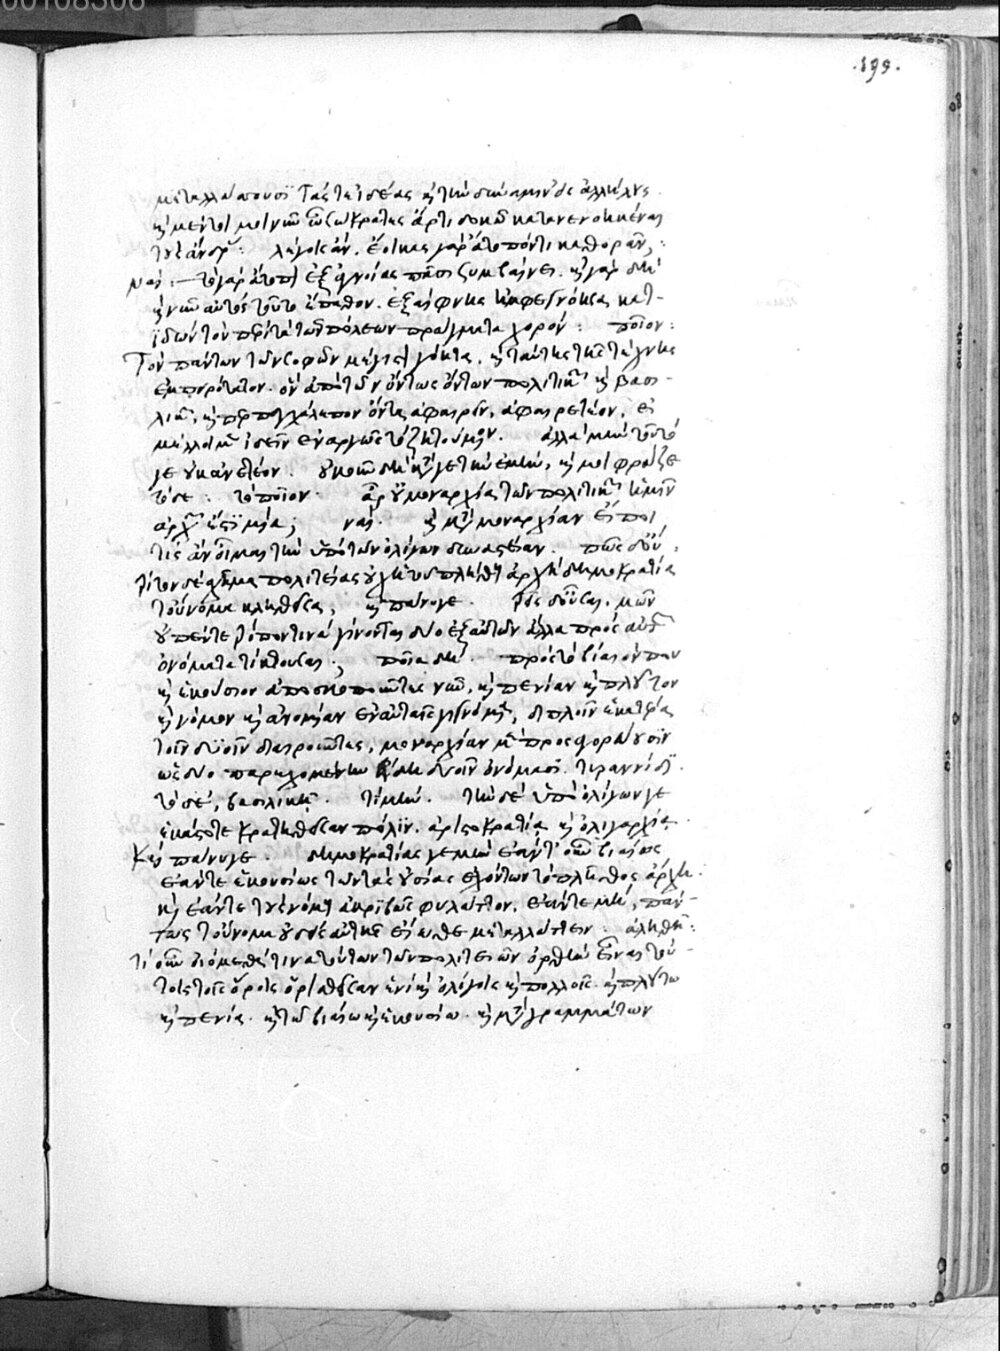 00108306
.199.
μεταλλάττουσι τάς τε ἰδέας καὶ τὴν δύναμιν ἐς ἀλλήλους.
καὶ μέντοι μοι νῦν ὦ σώκρατες ἄρτι δοκῶ κατανενοηκέναι
τοὺς ἄνδρας: λέγοις ἄν. ἔοικας γὰρ ἄτοπόν τι καθορᾶν:
ναί: τὸ γὰρ ἄτοπον ἐξ ἀγνοίας πᾶσι ξυμβαίνει. καὶ γὰρ δὴ
καὶ νῦν αὐτὸς τοῦτο ἔπαθον. ἐξαίφνης ἠμφεγνόησα κατ-
ϊδὼν τὸν περὶ τὰ τῶν πόλεων πράγματα χορόν: ποῖον:
Τὸν πάντων τῶν σοφῶν μέγιστον γόητα. καὶ ταύτης τῆς τέχνης
ἐμπειρότατον. ὃν ἀπὸ τῶν ὄντως ὄντων πολιτικῶν καὶ βασι-
λικῶν, καίπερ παγχάλεπον ὄντα ἀφαιρεῖν, ἀφαιρετέον, εἰ
μέλλομεν ἰδεῖν ἐναργῶς τὸ ζητούμενον. ἀλλὰ μὴν τοῦτό
γε οὐκ ἀνετέον. οὐκοῦν δὴ κατά γε τὴν ἐμήν, καί μοι φράζε
τόδε: τὸ ποῖον. ἆρ' οὐ μοναρχία τῶν πολιτικῶν ἡμῖν
ἀρχῶν ἐστὶ μία; ναί. καὶ μετὰ μοναρχίαν εἴποι
τις ἂν οἶμαι τὴν ὑπὸ τῶν ὀλίγων δυναστείαν. πῶς δ' οὔ,
Τρίτον δὲ σχῆμα πολιτείας οὐχ ἡ τοῦ πλήθους ἀρχὴ δημοκρατία
τοὔνομα κληθεῖσα; καὶ πάνυ γε. Τρεῖς δ' οὖσαι. μῶν
οὐ πέντε τρόπον τινὰ γίνονται δύο ἐξ αὐτῶν ἄλλα πρὸς αὐταῖς
ὀνόματα τίκτουσαι; ποῖα δή. πρὸς τὸ βίαιόν που
καὶ ἑκούσιον ἀποσκοποῦντες νῦν, καὶ πενίαν καὶ πλοῦτον
καὶ νόμον καὶ ἀνομίαν ἐν αὐταῖς γιγνόμενα, διπλῆν ἑκατέραν
τοῖν δυοῖν διαιροῦντες, μοναρχίαν μὲν προσαγορεύουσιν
ὡς δύο παρεχομένην εἴδη δυοῖν ὀνόμασι. τυραννίδι.
τὸ δὲ, βασιλικῇ. τί μήν. τὴν δὲ ὑπὸ ὀλίγων γε
ἑκάστοτε κρατηθεῖσαν πόλιν. ἀριστοκρατίᾳ καὶ ὀλιγαρχίᾳ.
Καὶ πάνυ γε. δημοκρατίας γε μὴν ἐάντ' οὖν βιαίως
ἐάντε ἑκουσίως τῶν τὰς οὐσίας ἐχόντων τὸ πλῆθος ἄρχῃ.
καὶ ἐάντε τοὺς νόμους ἀκριβῶς φυλάττον, ἐάντε μή, πάν-
τως τοὔνομα οὐδεὶς αὐτῆς εἴωθε μεταλλάττειν. ἀληθῆ:
τί οὖν οἰόμεθά τινα τούτων τῶν πολιτειῶν ὀρθὴν εἶναι τού-
τοις τοῖς ὅροις ὁρισθεῖσαν ἑνὶ καὶ ὀλίγοις καὶ πολλοῖς. καὶ πλούτῳ
καὶ πενίᾳ. καὶ τῷ βιαίῳ καὶ ἑκουσίῳ. καὶ μετὰ γραμμάτων